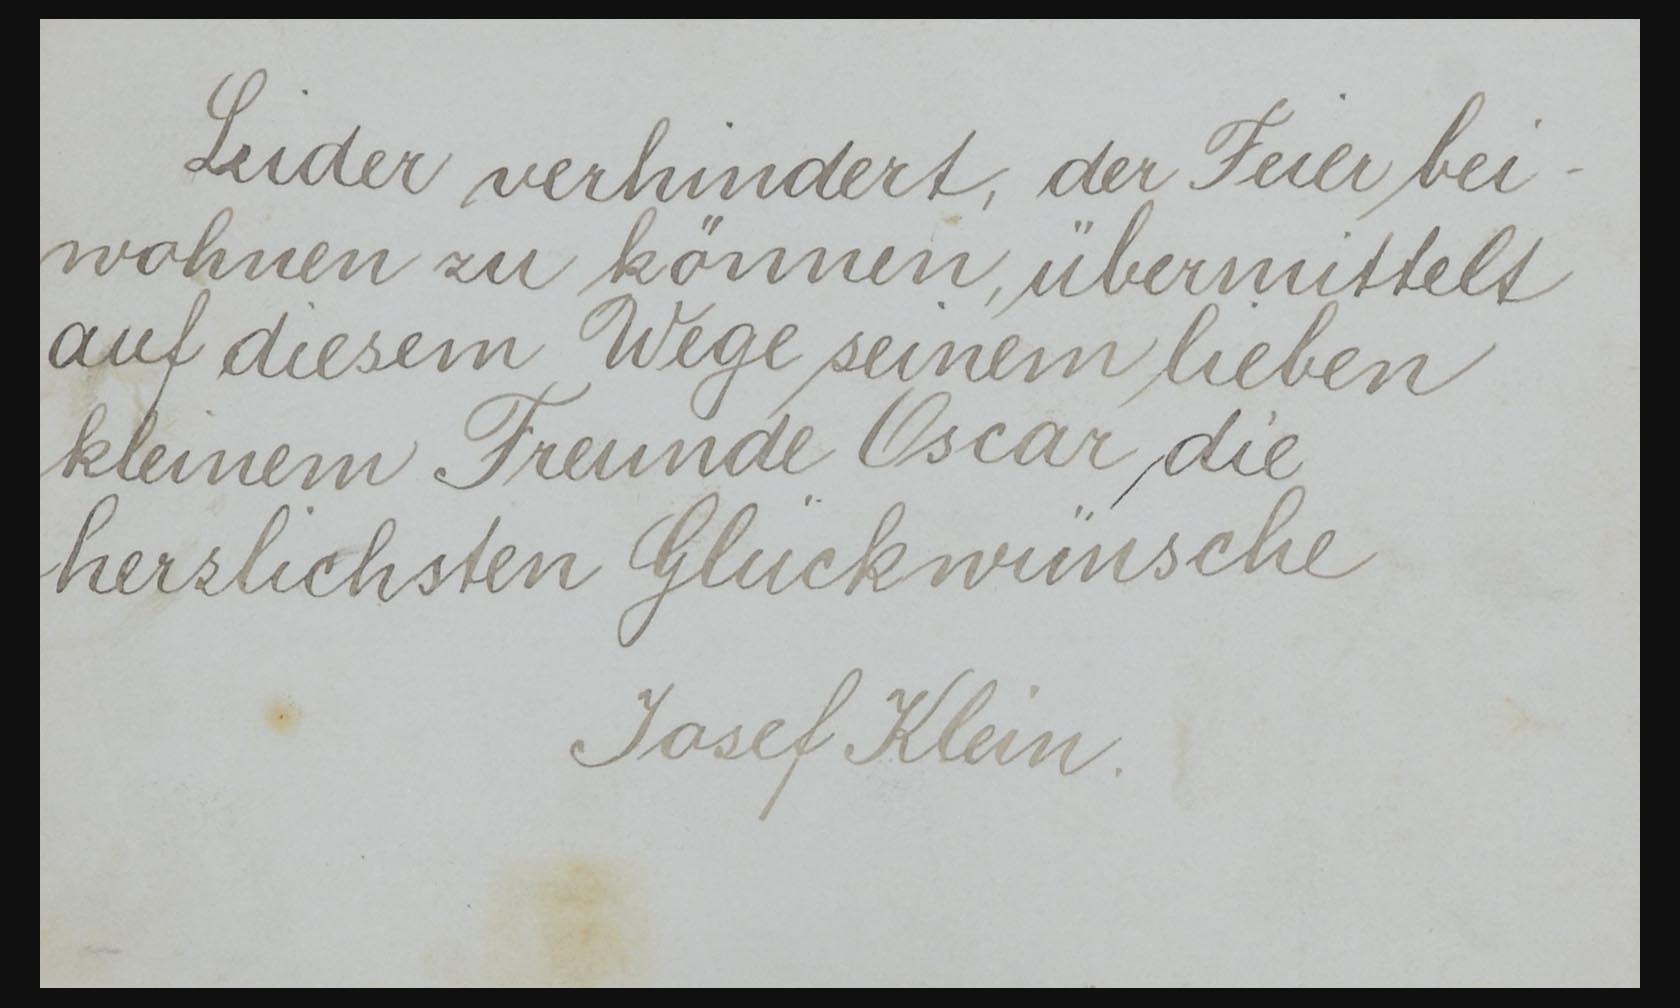 Leider verhindert, der Feier bei-
wohnen zu können, übermittelt
auf diesem Wege seinem lieben
kleinem Freunde Oscar die
herzlichsten Glückwünsche
Josef Klein.